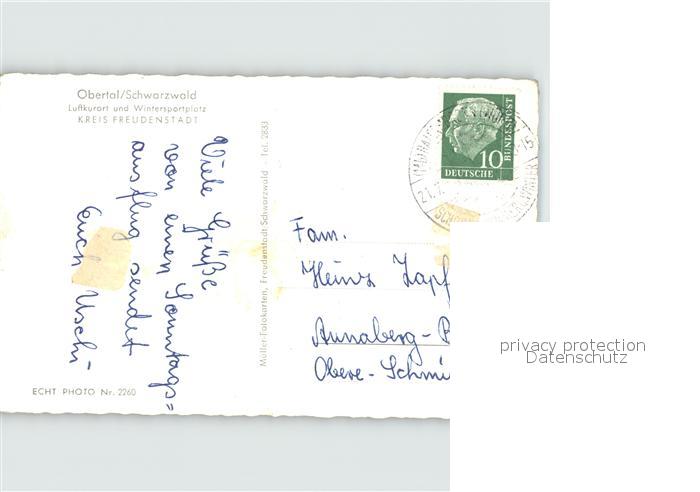 Obertal/Schwarzwald
Luftkurort und Wintersportplatz
KREIS FREUDENSTADT
Viele Grüße
von einem Sonntags=
ausflug sendet
Euch Uschi
ECHT PHOTO Nr. 2260
Müller-Fotokarten, Freudenstadt Schwarzwald - Tel. 2833
10
DEUTSCHE
BUNDESPOST
Fam.
Heinz Zapf
Annaberg-B
Obere-Schmi
privacy protection
Datenschutz